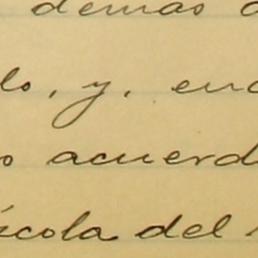 demas
lo, y, en
o acuerd
scola del